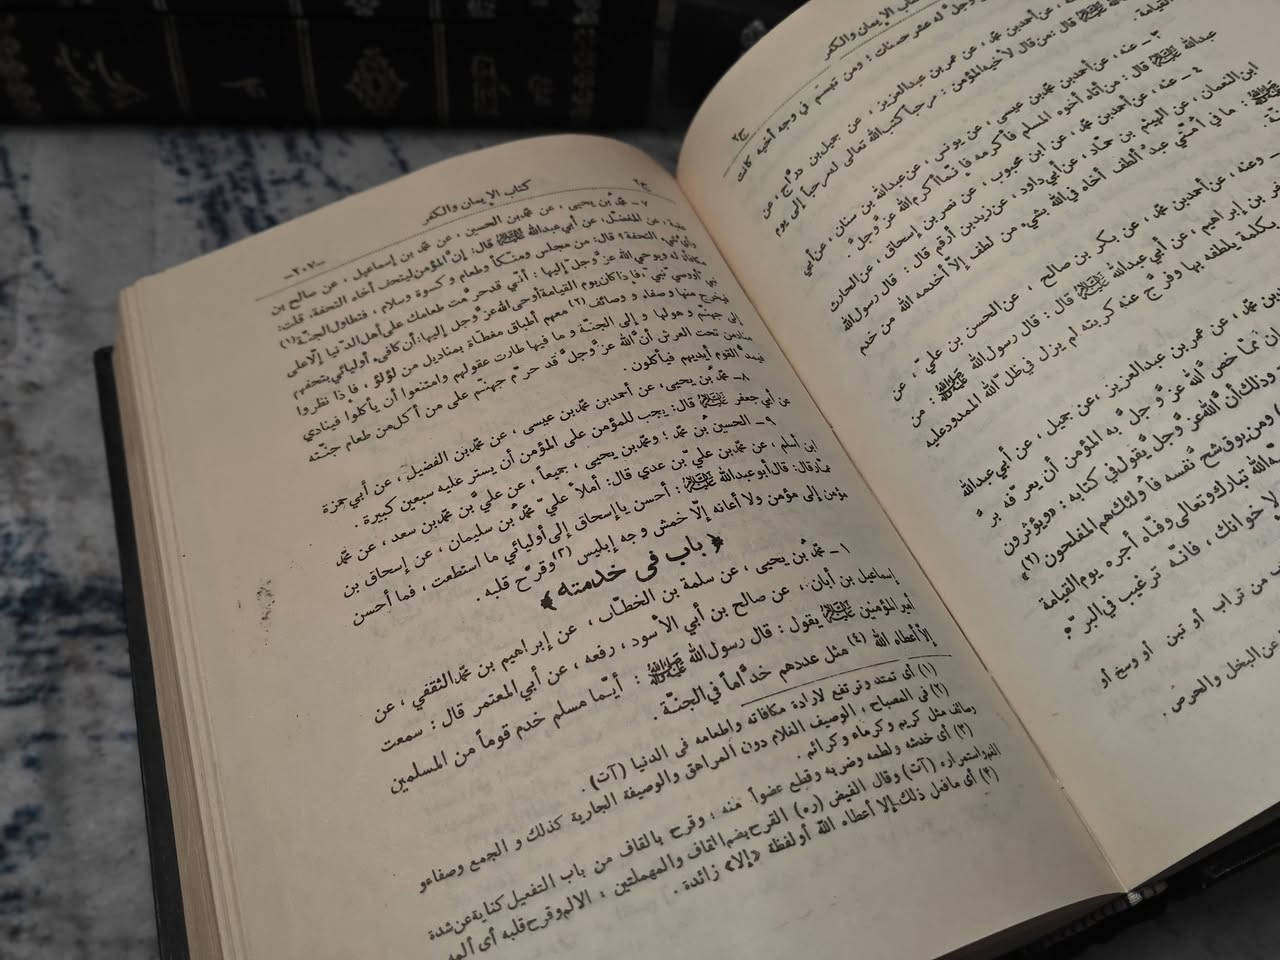 كتاب الإيمان والكفر
ج٢
وجلّ له عشر حسنات ؛ ومن تبسّم في وجه أخيه كانت
عن أحمد بن محمّد ، عن عمر بن عبدالعزيز ، عن جميل بن درّاج ، عن
قال : من قال لأخيه المؤمن : مرحباً كتب الله تعالى له مرحباً إلى يوم
القيامة .
٣ ـ عنه ، عن أحمد بن محمّد بن عيسى ، عن يونس ، عن عبدالله بن سنان ، عن أبي
عبدالله عليه السلام قال : من أتاه أخوه المسلم فأكرمه فإنّما أكرم الله عزّ وجلّ .
٤ ـ عنه ، عن أحمد بن محمّد ، عن ابن محبوب ، عن نصر بن إسحاق ، عن الحارث
ابن النعمان ، عن الهيثم بن حمّاد ، عن أبي داود ، عن زيد بن أرقم قال : قال رسول الله
: ما في اُمّتي عبد ألطف أخاه في الله بشيء من لطف إلّا أخدمه الله من خدم
ـ وعنه ، عن أحمد بن محمّد ، عن بكر بن صالح ، عن الحسن بن عليّ ، عن
بن إبراهيم ، عن أبي عبدالله عليه السلام قال : قال رسول الله صلى الله عليه وآله : من
بكلمة يلطفه بها وفرّج عنه كربته لم يزل في ظلّ الله الممدود عليه
عن عمر بن عبدالعزيز ، عن جميل ، عن أبي عبدالله
إن ممّا خصّ الله عزّ وجلّ به المؤمن أن يعرّفه برّ
وذلك أنّ الله عزّ وجلّ يقول في كتابه : «ويؤثرون
ومن يوق شحّ نفسه فأولئك هم المفلحون (٢)»
الله تبارك وتعالى وفّاه أجره يوم القيامة
لإخوانك ، فإنّه ترغيب في البرّ .
من تراب أو تبن أو وسخ أو
عن البخل والحرص .
ج٢
كتاب الإيمان والكفر
ـ٢٠٧ـ
٧ ـ محمّد بن يحيى ، عن محمّد بن الحسين ، عن محمّد بن إسماعيل ، عن صالح بن
عقبة ، عن المفضّل ، عن أبي عبدالله عليه السلام قال : إنّ المؤمن ليتحف أخاه التحفة ، قلت :
وأيّ شيء التحفة ؟ قال : من مجلس ومتّكأ وطعام وكسوة وسلام ، فتطاول الجنّة (١)
مكافأة له ويوحي الله عزّ وجلّ إليها : أنّي قد حرّمت طعامك على أهل الدّنيا إلّا على
نبيّ أو وصيّ نبيّ ، فإذا كان يوم القيامة أوحى الله عزّ وجلّ إليها : أن كافيء أوليائي بتحفهم
فيخرج منها وصفاء و وصائف (٢) معهم أطباق مغطّاة بمناديل من لؤلؤ ، فإذا نظروا
إلى جهنّم و هولها و إلى الجنّة و ما فيها طارت عقولهم وامتنعوا أن يأكلوا فينادي
مناد من تحت العرش أنّ الله عزّ وجلّ قد حرّم جهنّم على من أكل من طعام جنّته
فيمدّ القوم أيديهم فيأكلون .
٨ ـ محمّد بن يحيى ، عن أحمد بن محمّد بن عيسى ، عن محمّد بن الفضيل ، عن أبي حمزة
عن أبي جعفر عليه السلام قال : يجب للمؤمن على المؤمن أن يستر عليه سبعين كبيرة .
٩ ـ الحسين بن محمّد ؛ ومحمّد بن يحيى ، جميعاً ، عن عليّ بن محمّد بن سعد ، عن محمّد
ابن أسلم ، عن محمّد بن عليّ بن عدي قال : أملأ عليّ محمّد بن سليمان ، عن إسحاق بن
عمّار قال : قال أبو عبدالله عليه السلام : أحسن يا إسحاق إلى أوليائي ما استطعت ، فما أحسن
مؤمن إلى مؤمن ولا أعانه إلّا خمش وجه إبليس (٣) وقرّح قلبه .
﴿ باب في خدمته ﴾
١ ـ محمّد بن يحيى ، عن سلمة بن الخطّاب ، عن إبراهيم بن محمّد الثقفي ، عن
إسماعيل بن أبان ، عن صالح بن أبي الأسود ، رفعه ، عن أبي المعتمر قال : سمعت
أمير المؤمنين عليه السلام يقول : قال رسول الله صلى الله عليه وآله : أيّما مسلم خدم قوماً من المسلمين
إلّا أعطاه الله (٤) مثل عددهم خدّاماً في الجنّة .
(١) أى تمتد وترتفع لارادة مكافاته واطعامه فى الدنيا (آت) .
(٢) فى المصباح ، الوصيف الغلام دون المراهق والوصيفة الجارية كذلك و الجمع وصفاء و
وصائف مثل كريم وكرماء وكرائم .
(٣) أى خدشه ولطمه وضربه وقطع عضواً منه ؛ وقرح بالقاف من باب التفعيل كناية عن شدة
الغم واستمراره (آت) وقال الفيض (ره) القرح بضم القاف والمهملتين ؛ الالم وقرح قلبه أى ألمه
(٤) أى ما فعل ذلك إلا أعطاه الله أو لفظة «إلا» زائدة .